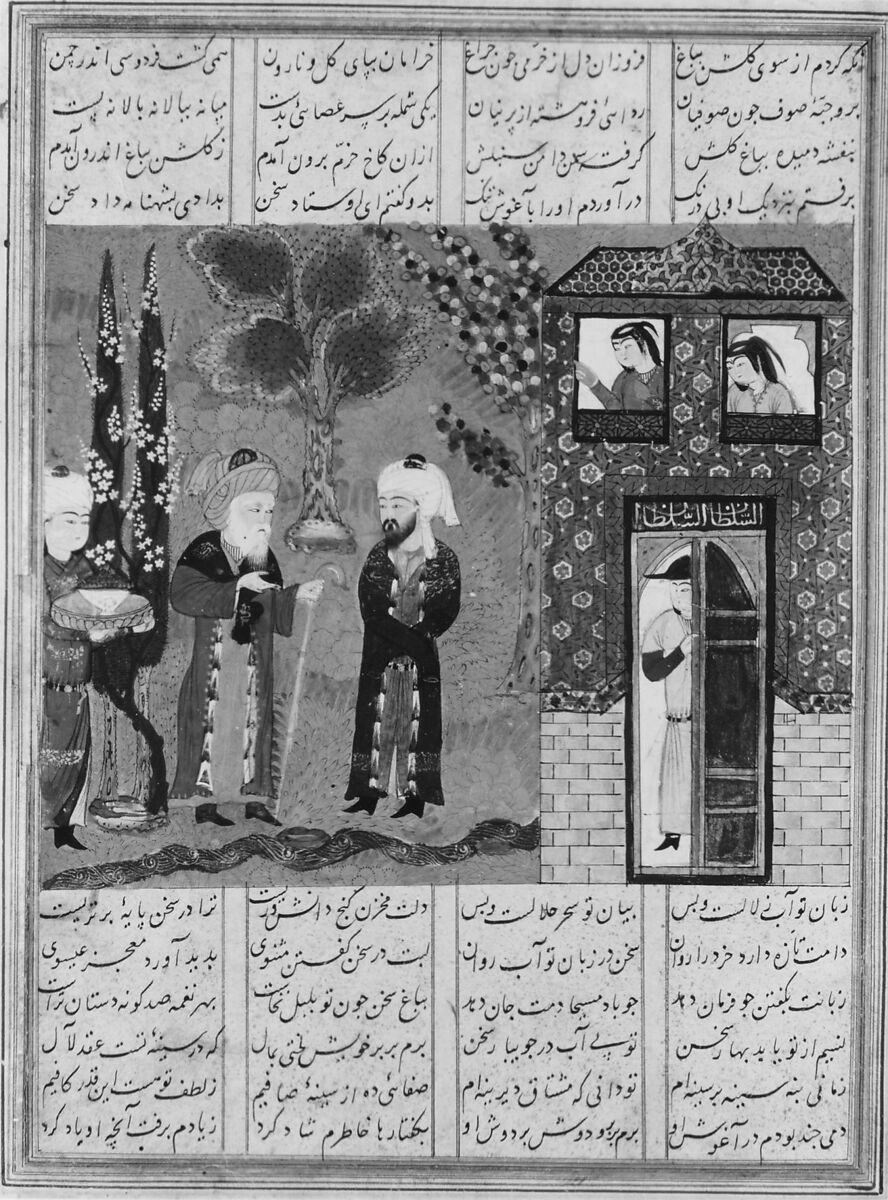 نگه کردم از سوی گلشن بباغ فروزان دل از خرّمی چون چراغ خرامان بپای گل و نارون همی گشت فردوسی اندر چمن
ببر جبّهٔ صوف چون صوفیان ردائی فروهشته از پرنیان یکی شمله بر سر عصائی بدست میانه ببالا نه بالا نه پست
بنفشه دمیده بباغ گلش گرفته سمن دامن سنبلش ازان کاخ خرّم برون آمدم ز گلشن بباغ اندرون آمدم
برفتم بنزدیک او بی درنگ درآوردم او را بآغوش تنگ بدو گفتم ای اوستاد سخن بدادی بشهنامه داد سخن
السلطان السلطان
زبان تو آب زلالست و بس بیان تو سحر حلالست و بس دلت مخزن گنج دانش وریست ترا در سخن پایهٔ برتریست
دمت تازه دارد خرد را روان سخن در زبان تو آب روان لبت در سخن گفتن مثنوی پدید آورد معجز عیسوی
زبانت بگفتن چو فرمان دهد چو باد مسیحا دمت جان دهد بباغ سخن چون تو بلبل نخاست بهر نغمه صد گونه دستان تراست
نسیم از تو یابد بهار سخن توئی آب در جویبار سخن برم بر بر خویش لختی بمال که در سینهٔ تست عقد لآل
زمانی بنه سینه بر سینه ام تو دانی که مشتاق دیرینه ام صفائی ده از سینهٔ صافیم ز لطف تو هست این قدر کافیم
دمی چند بودم در آغوش او برم بر بر و دوش بر دوش او بگفتارها خاطرم شاد کرد ز یادم برفت آنچه او یاد کرد